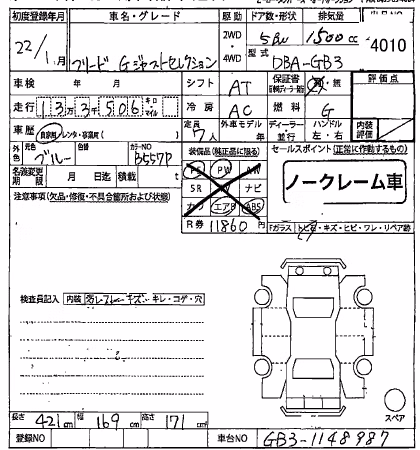 初度登録年月 車名・グレード 駆動 ドア数・形状 排気量
22/1月 フリード Gジャストセレクション 2WD・4WD 5ドア 1500cc 4010
型式 DBA-GB3
車検 年 月 シフト AT 保証書 有・無 評価点
走行 13万3千506 キロ マイル 冷房 AC 燃料 G
車歴 自家用・レンタ・事業用( ) 定員 7人 外車モデル 年 ディーラー・並行 ハンドル 左・右 内装評価
外色 元色 ブルー 色替 カラーNO B557P 装備品(純正品に限る) セールスポイント(正常に作動するもの)
名義変更期限 月 日迄 積載 t PS PW AW ノークレーム車
注意事項(欠品・修復・不具合箇所および状態) SR ナビ
カワ エアB ABS
R券 11860円 Fガラス トビ石・キズ・ヒビ・ワレ・リペア跡
検査員記入 内装 キズ・キレ・コゲ・穴
スペア
長さ 421cm 幅 169cm 高さ 171cm
登録NO 車台NO GB3-1148987